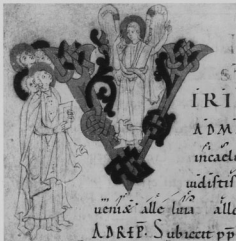 VIRI
ADM
incael
uidistis
ueni& alle luia alle
AD REP. Subiecit pp